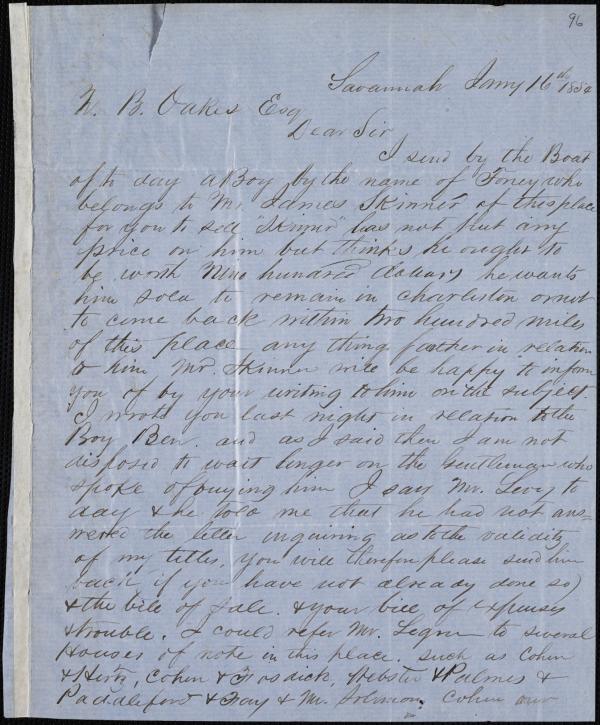 96
Savannah Jany 16th 1854
Z. B. Oakes Esq
Dear Sir
I send by the Boat
of to day a Boy by the name of Toney who
belongs to Mr James Skinner of this place
for you to sell "Skinner" has not put any
price on him but thinks he ought to
be worth Nine hundred dollars he wants
him sold to remain in Charleston or not
to come back within two hundred miles
of this place any thing farther in relation
to him Mr. Skinner will be happy to inform
you of by your writing to him on the subject.
I wrote you last night in relation to the
Boy Ben. and as I said then I am not
disposed to wait longer on the Gentleman who
spoke of buying him I saw Mr. Levy to
day & he told me that he had not ans-
wered the letter inquiring as to the validity
of my titles, you will therefore please send him
back if you have not already done so)
& the bill of sale. & your bill of expenses
& trouble. I could refer Mr. to several
Houses of note in this place. such as Cohen
& Hertz, Cohen & Fosdick, Webster & Palmes &
Padelford & Fay & Mr. Solomon Cohen our